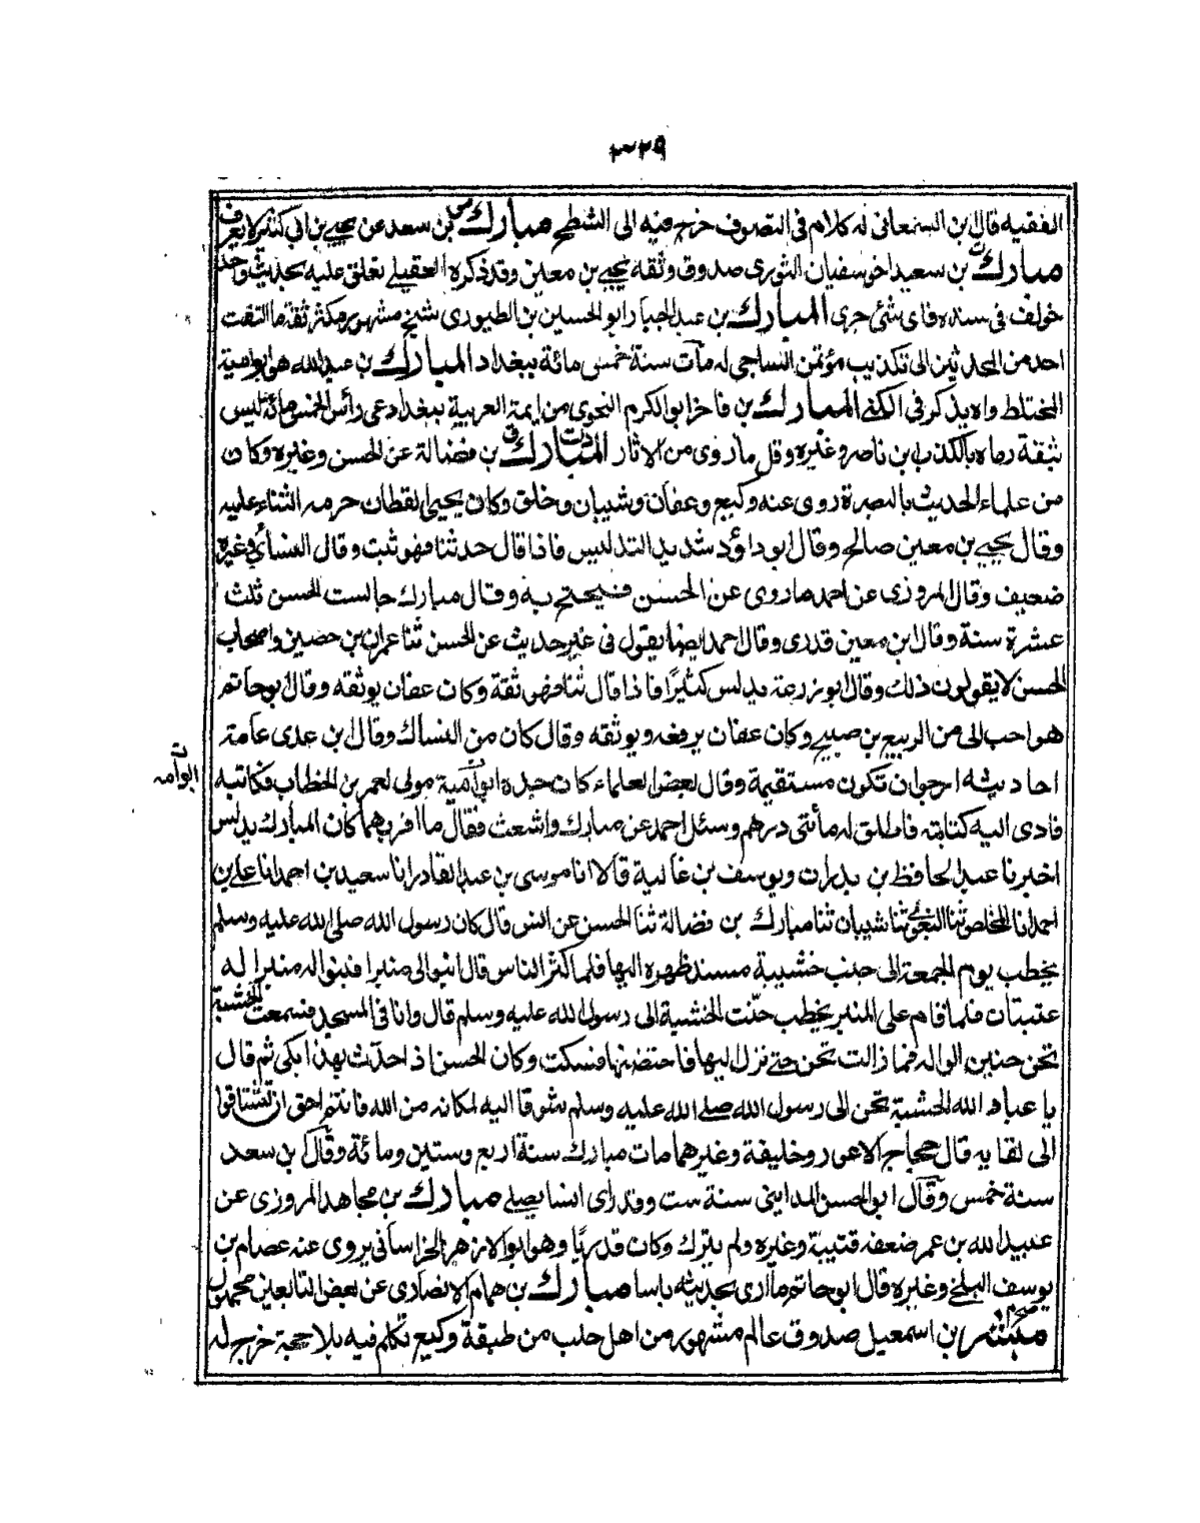 ٣٢٩
الفقيه قال بن السمعانى له كلام فى التصوف خرج منه الى الشطح مبارك بن سعد عن يحيى بن ابى كثير لا يعرف
مبارك بن سعيد اخو سفيان الثورى صدوق وثقه يحيى بن معين وقد ذكره العقيلى تعلق عليه بحديث واحد
خولف فى سنده فاى شئ جرى المبارك بن عبد الجبار ابو الحسين بن الطيورى شيخ مشهور مكثر ثقة ما التفت
احد من المحدثين الى تكذيب مؤتمن الساجى له مات سنة خمس مائة ببغداد المبارك بن عبد الله هو ابو امية
المختلط واه يذكر فى الكنى المبارك بن فاخر ابو الكرم النحوى من ايمة العربية ببغداد على رأس الخمس مائة ليس
بثقة رماه بالكذب بن ناصر وغيره وقل ما روى من الاثار المبارك بن فضالة عن الحسن وغيره وكان
من علماء الحديث بالبصرة روى عنه وكيع وعفان وشيبان وخلق وكان يحيى القطان حرمه الثناء عليه
وقال يحيى بن معين صالح وقال ابو داؤد شديد التدليس فاذا قال حدثنا فهو ثبت وقال النسائى وغيره
ضعيف وقال المروزى عن احمد ما روى عن الحسن فيحتج به وقال مبارك جالست الحسن ثلث
عشرة سنة وقال ابن معين قدرى وقال احمد ايضا يقول فى غير حديث عن الحسن ثنا عمران بن حصين واصحاب
الحسن لا يقولون ذلك وقال ابو زرعة يدلس كثيرًا فاذا قال ثنا فهو ثقة وكان عفان يوثقه وقال ابو حاتم
هو احب الى من الربيع بن صبيح وكان عفان يرفعه ويوثقه وقال كان من النساك وقال ابن عدى عامة
احاديثه ارجو ان تكون مستقيمة وقال بعض العلماء كان جده ابو امية مولى لعمر بن الخطاب فكاتبه
ابو امه
فادى اليه كتابته فاطلق له مأئتى درهم وسئل احمد عن مبارك واشعث فقال ما اقربهما كان المبارك يدلس
اخبرنا عبد الحافظ بن بدران ويوسف بن غالية قالا انا موسى بن عبد القادر انا سعيد بن احمد انا على بن
احمد انا المخلص ثنا البغوى ثنا شيبان ثنا مبارك بن فضالة ثنا الحسن عن انس قال كان رسول الله صلى الله عليه وسلم
يخطب يوم الجمعة الى جنب خشيبة مسند ظهره اليها فلما كثر الناس قال ابنوا لى منبرا فبنوا له منبرا له
عتبتان فلما قام على المنبر يخطب حنّت الخشبة الى رسول الله عليه وسلم قال وانا فى المسجد فسمعت الخشبة
تحن حنين الواله فما ذالت تحن حتى نزل اليها فاحتضنها فسكت وكان الحسن اذ احدّث بهذا ابكى ثم قال
يا عباد الله الخشبة تحن الى رسول الله صلى الله عليه وسلم شوقا اليه لمكانه من الله فانتم احق ان تشتاقوا
الى لقايه قال حجاج الاعور وخليفة وغيرهما مات مبارك سنة اربع وستين ومائة وقال ابن سعد
سنة خمس وقال ابو الحسن المداينى سنة ست وقد رأى انسا يصلى مبارك بن مجاهد المروزى عن
عبيد الله بن عمر ضعفه قتيبة وغيره ولم يترك وكان قدريًا وهو ابو الازهر الخراسانى يروى عنه عصام بن
يوسف البلخى وغيره قال ابو حاتم ما ارى بحديثه باسا مبارك بن همام الانصارى عن بعض التابعين مجهول
مبشر بن اسمعيل صدوق عالم مشهور من اهل حلب من طبقة وكيع تكلم فيه بلا حجة خرج له